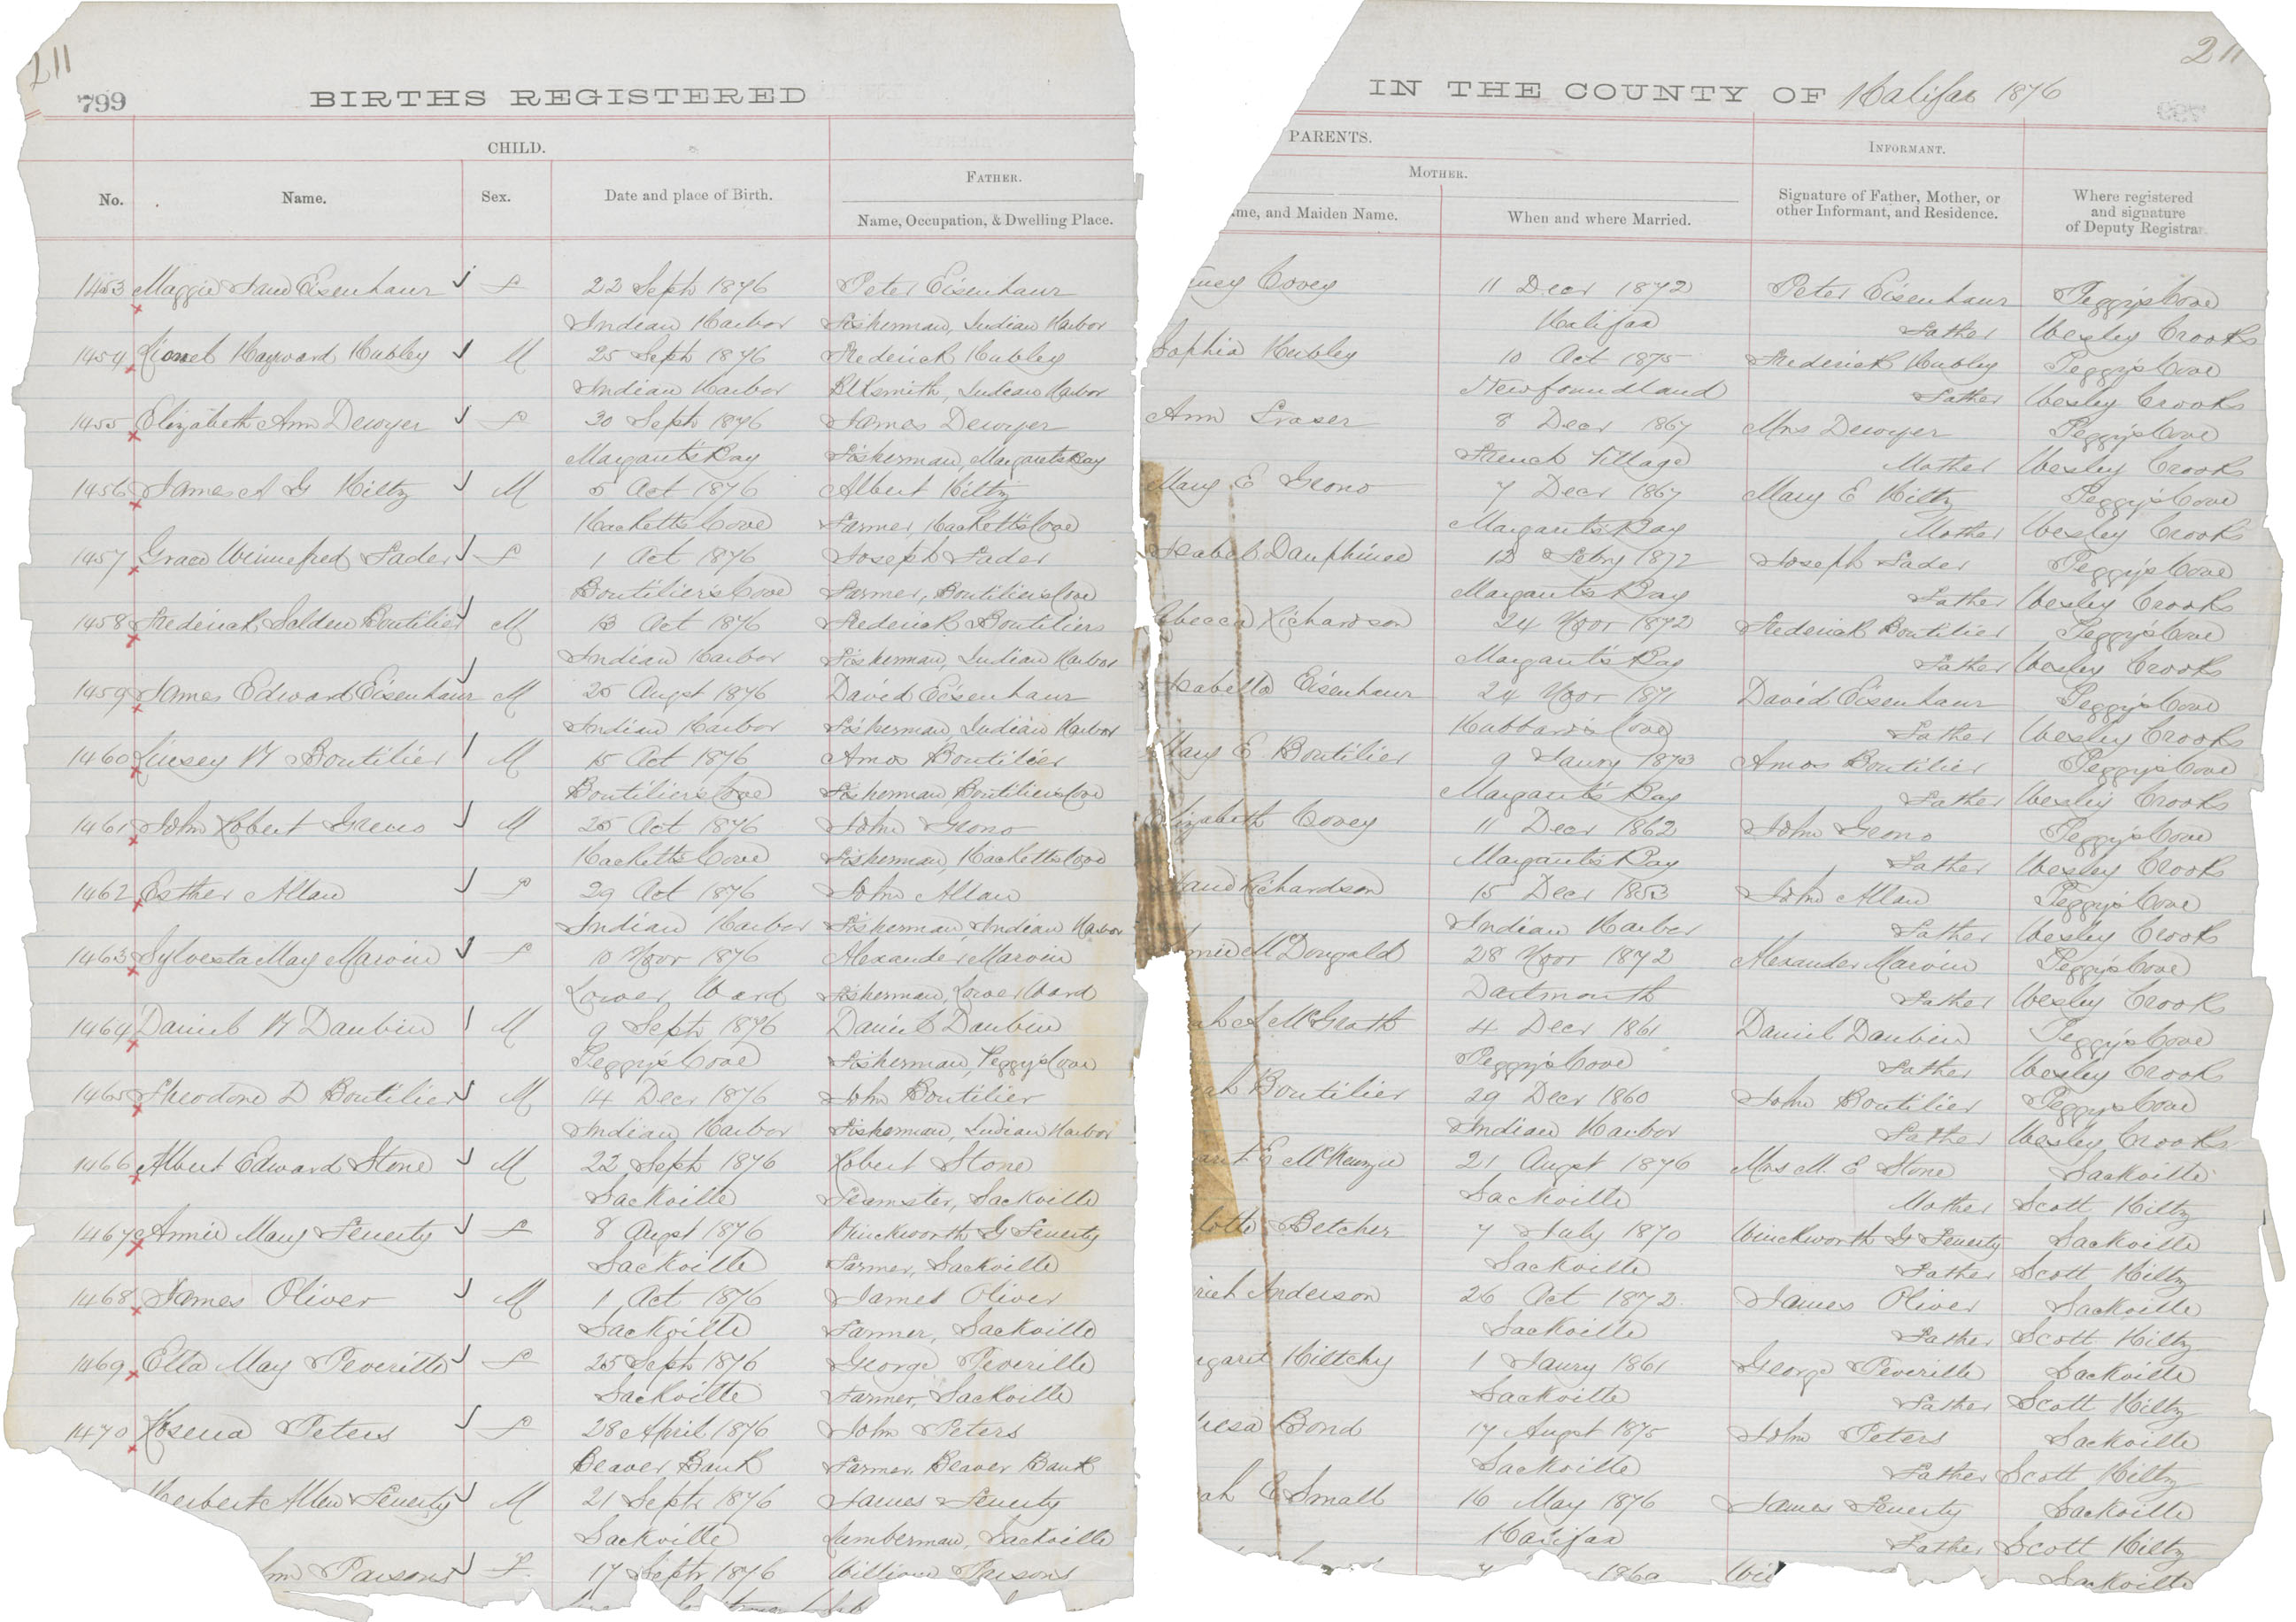 211
211
799
BIRTHS REGISTERED IN THE COUNTY OF Halifax 1876
CHILD. PARENTS. INFORMANT.
FATHER. MOTHER.
No. Name. Sex. Date and place of Birth. Name, Occupation, & Dwelling Place. me, and Maiden Name. When and where Married. Signature of Father, Mother, or other Informant, and Residence. Where registered and signature of Deputy Registrar
1453 Maggie Jane Eisenhaur F 22 Septr 1876 Peter Eisenhaur Covey 11 Decr 1872 Peter Eisenhaur Peggy's Cove
Indian Harbor Fisherman, Indian Harbor Halifax Father Wesley Crooks
1454 Lionel Hayward Hubley M 25 Septr 1876 Frederick Hubley Sophia Hubley 10 Oct 1875 Frederick Hubley Peggy's Cove
Indian Harbor Blksmith, Indian Harbor Newfoundland Father Wesley Crooks
1455 Elizabeth Ann Dewyer F 30 Septr 1876 James Dewyer Ann Fraser 8 Decr 1867 Mrs Dewyer Peggy's Cove
Margarets Bay Fisherman, Margarets Bay French Village Mother Wesley Crooks
1456 James A G Hiltz M 5 Oct 1876 Albert Hiltz Mary E Geono 7 Decr 1867 Mary E Hiltz Peggy's Cove
Hacketts Cove Farmer, Hacketts Cove Margarets Bay Mother Wesley Crooks
1457 Grace Winnefred Fader F 1 Oct 1876 Joseph Fader Isabel Dauphinee 12 Febry 1872 Joseph Fader Peggy's Cove
Boutiliers Cove Farmer, Boutiliers Cove Margarets Bay Father Wesley Crooks
1458 Frederick Salden Boutilier M 13 Oct 1876 Frederick Boutiliers ebecca Richardson 24 Novr 1872 Frederick Boutilier Peggy's Cove
Indian Harbor Fisherman, Indian Harbor Margarets Bay Father Wesley Crooks
1459 James Edward Eisenhaur M 25 Augst 1876 David Eisenhaur Isabella Eisenhaur 24 Novr 1871 David Eisenhaur Peggy's Cove
Indian Harbor Fisherman, Indian Harbor Hubbards Cove Father Wesley Crooks
1460 Linsey W Boutilier M 15 Oct 1876 Amos Boutilier Mary E Boutilier 9 Janry 1873 Amos Boutilier Peggy's Cove
Boutiliers Cove Fisherman, Boutiliers Cove Margarets Bay Father Wesley Crooks
1461 John Robert M 25 Oct 1876 John Geono Elizabeth Covey 11 Decr 1862 John Geono Peggy's Cove
Hacketts Cove Fisherman, Hacketts Cove Margarets Bay Father Wesley Crooks
1462 Esther Allan F 29 Oct 1876 John Allan Richardson 15 Decr 1853 John Allan Peggy's Cove
Indian Harbor Fisherman, Indian Harbor Indian Harbor Father Wesley Crooks
1463 Sylvesta May Marvin F 10 Novr 1876 Alexander Marvin nnie McDougald 28 Novr 1872 Alexander Marvin Peggy's Cove
Lower Ward Fisherman, Lower Ward Dartmouth Father Wesley Crooks
1464 Daniel W Daubin M 9 Septr 1876 Daniel Daubin ah A McGrath 4 Decr 1861 Daniel Daubin Peggy's Cove
Peggy's Cove Fisherman, Peggy's Cove Peggy's Cove Father Wesley Crooks
1465 Theodore D Boutilier M 14 Decr 1876 John Boutilier ah Boutilier 29 Decr 1860 John Boutilier Peggy's Cove
Indian Harbor Fisherman, Indian Harbor Indian Harbor Father Wesley Crooks
1466 Albert Edward Stone M 22 Septr 1876 Robert Stone aret E McKenzie 21 Augst 1876 Mrs M. E Stone Sackville
Sackville Teamster, Sackville Sackville Mother Scott Hiltz
1467 Annie Mary Fenerty F 8 Augst 1876 Winckworth G Fenerty lotte Betcher 7 July 1870 Winckworth G Fenerty Sackville
Sackville Farmer, Sackville Sackville Father Scott Hiltz
1468 James Oliver M 1 Oct 1876 James Oliver riah Anderson 26 Oct 1872 James Oliver Sackville
Sackville Farmer, Sackville Sackville Father Scott Hiltz
1469 Etta May Peverille F 25 Septr 1876 George Peverille garet Hiltchy 1 Janry 1861 George Peverille Sackville
Sackville Farmer, Sackville Sackville Father Scott Hiltz
1470 Rosena Peters F 28 April 1876 John Peters resa Bond 17 Augst 1875 John Peters Sackville
Beaver Bank Farmer, Beaver Bank Sackville Father Scott Hiltz
Herbert Allen Fenerty M 21 Septr 1876 James Fenerty ah C Small 16 May 1876 James Fenerty Sackville
Sackville Lumberman, Sackville Halifax Father Scott Hiltz
Parsons F 17 Septr 1876 William Parsons 7 1860 Wil Sackville